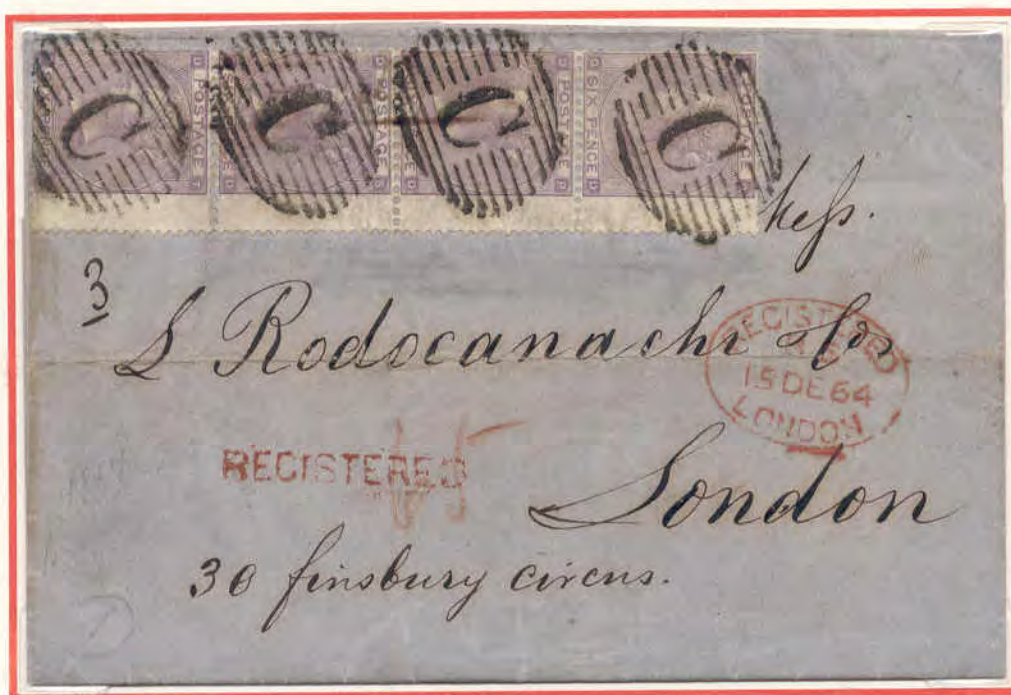 C C C C
POSTAGE POSTAGE POSTAGE SIX PENCE POSTAGE
Mess.
3
S Rodocanachi Sons
REGISTERED
15 DE 64
LONDON
REGISTERED
London
30 finsbury circus.